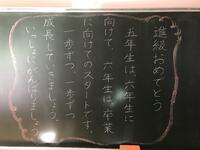 進級おめでとう
五年生は、六年生に
向けて、六年生は、卒業
に向けてのスタートです。
一歩ずつ、一歩ずつ
成長していきましょう。
いっしょにがんばりましょう。